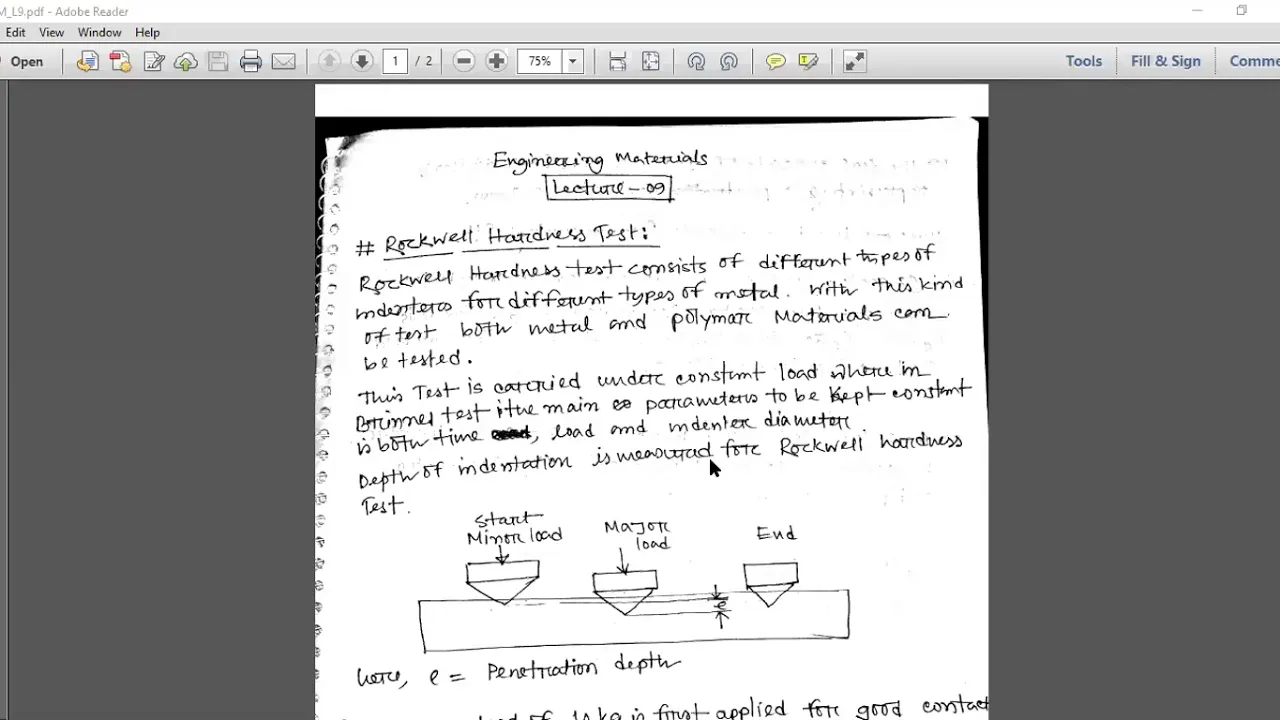 M_L9.pdf - Adobe Reader
Edit View Window Help
Open 1 / 2 75% Tools Fill & Sign Comme
Engineering Materials
Lecture - 09
# Rockwell Hardness Test:
Rockwell Hardness test consists of different types of
indenters for different types of metal. With this kind
of test both metal and polymar Materials can
be tested.
This Test is carried under constant load where in
Brinnel test the main parameters to be kept constant
is both time , load and indenter diameter
Depth of indentation is measured for Rockwell hardness
Test.
Start
Minor load
Major
load
End
e
here, e = Penetration depth
load of 10 kg is first applied for good contact